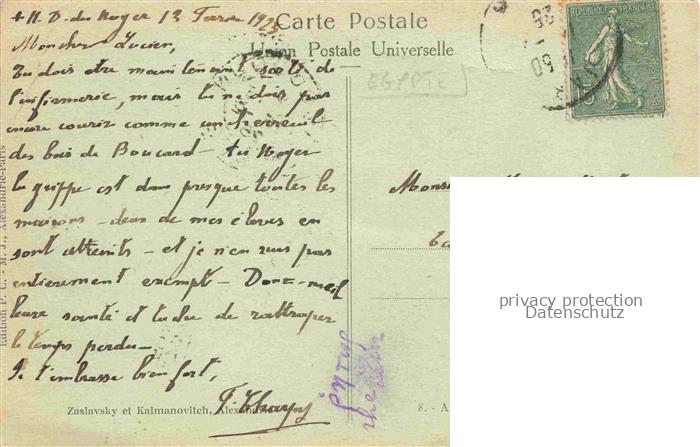 + N. D. du Noyer 12 Février 1925
Carte Postale
Union Postale Universelle
EGYPTE
REPUBLIQUE FRANÇAISE
Mon cher Lucien,
Tu dois être maintenant sorti de
l'infirmerie, mais tu ne dois pas
encore courir comme un écureuil
des bois de Boucard - Au Noyer
la grippe est dans presque toutes les
maisons - deux de mes élèves en
sont atteints - et je n'en suis pas
entièrement exempt - Donc meil
leure santé et tâche de rattraper
le temps perdu -
Je t'embrasse bien fort,
Zaslavsky et Kalmanovitch, Alexandrie
Edition P. C. - M. J., Alexandrie-Paris
8. - A
privacy protection
Datenschutz